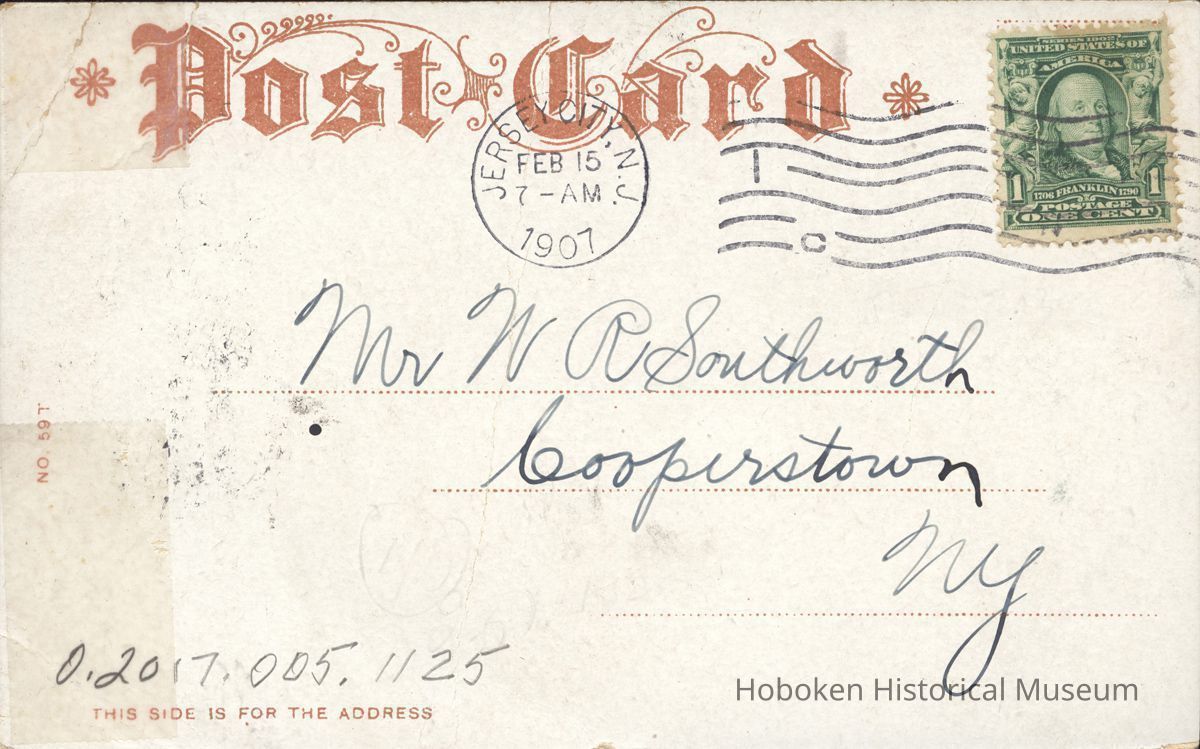 Post Card
SERIES 1902
UNITED STATES OF
AMERICA
1 1706 FRANKLIN 1790 1
POSTAGE
ONE CENT
JERSEY CITY, N.J.
FEB 15
7-AM
1907
I
C
Mr W R Southworth
Cooperstown
NY
NO. 59T
0.2017.005.1125
THIS SIDE IS FOR THE ADDRESS
Hoboken Historical Museum